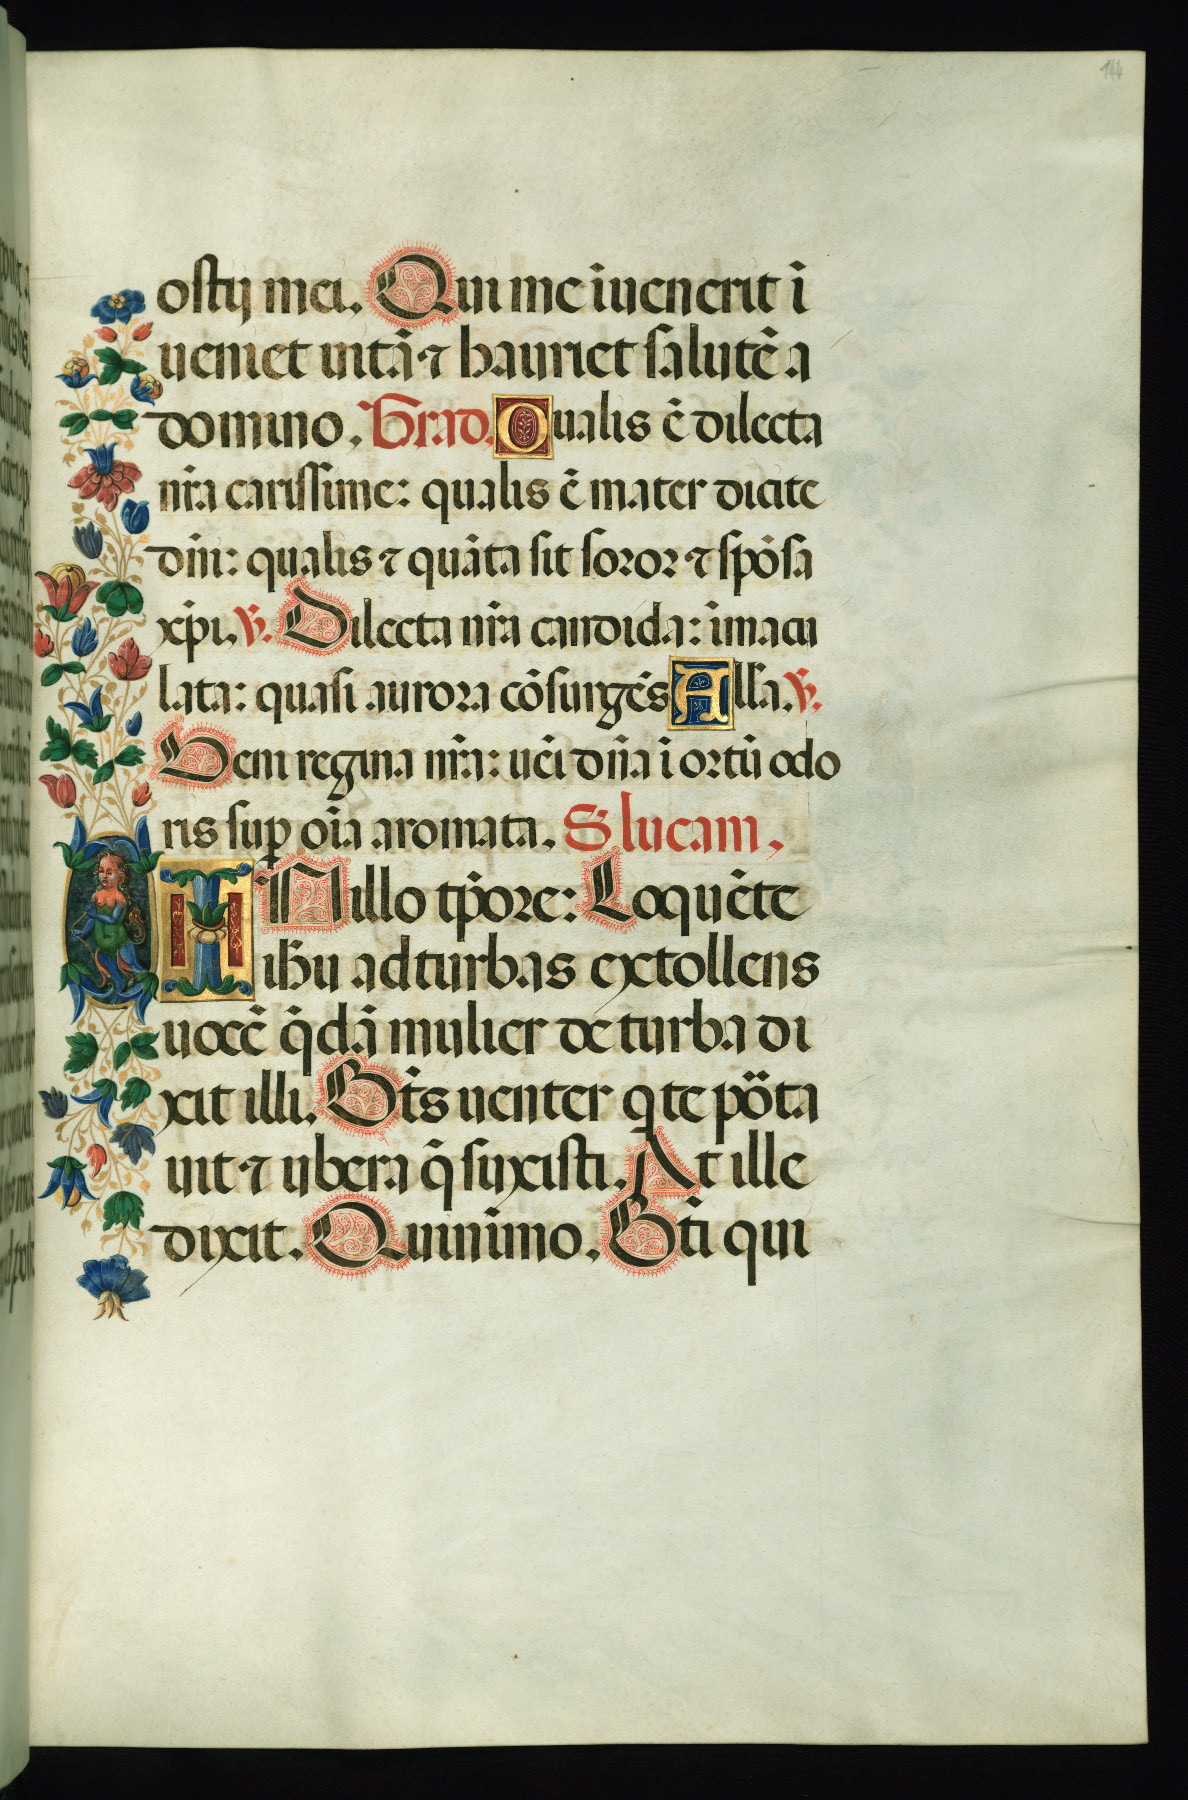 144
ostij mei. Qui me īuenerit ī
ueniet uitā ⁊ hauriet salutē a
domino. Grad. Qualis ē dilecta
nr̄a carissime: qualis ē mater dicite
dn̄i: qualis ⁊ quāta sit soror ⁊ spōsa
xp̄i. ℣. Dilecta nr̄a candida: īmacu
lata: quasi aurora cōsurgēs All̄a. ℣.
Veni regina nr̄a: uēi dn̄a ī ortū odo
ris sup oīa aromata. S lucam.
IN illo tp̄ore: Loquēte
ihū ad turbas extollens
uocē q̄dā mulier de turba di
xit illi. Bt̄s uenter q te pōta
uit ⁊ ubera q̄ suxisti. At ille
dixit. Quinimo. Bt̄i qui